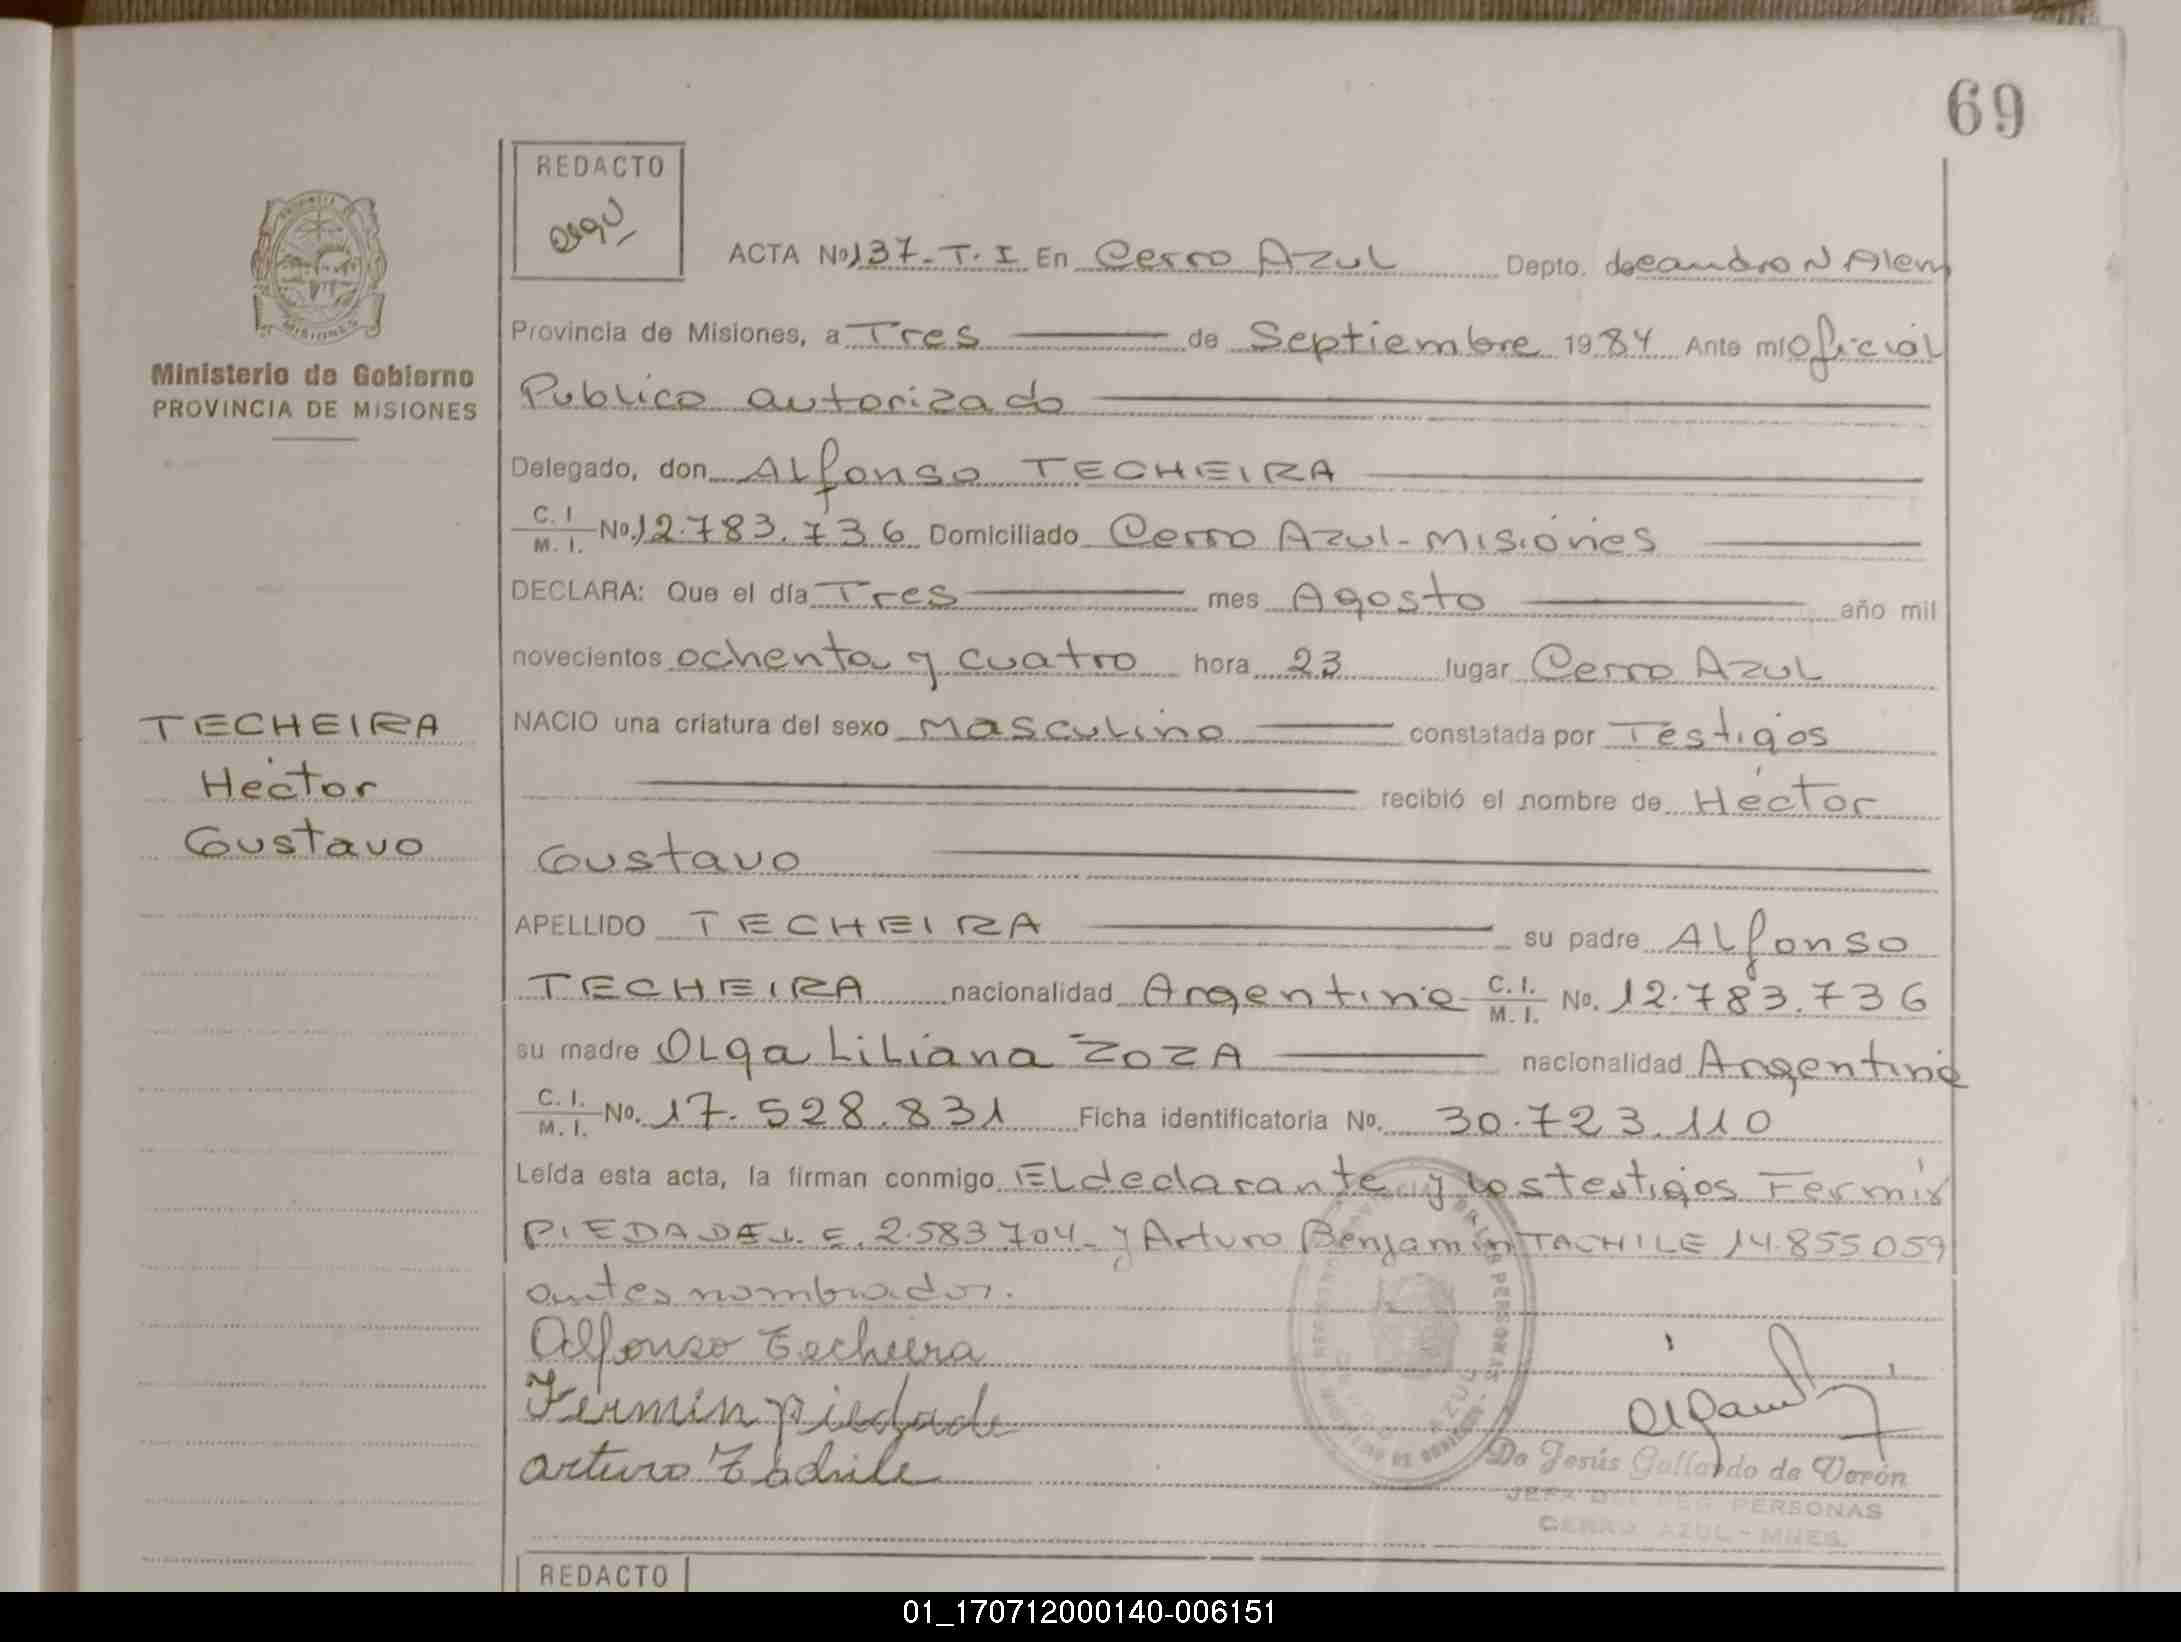 69
REDACTO
ACTA Nº 137-T.I En Cerro Azul Depto. Leandro N Alem
Provincia de Misiones, a Tres de Septiembre 1984 Ante mi Oficial
Publico autorizado
Delegado, don Alfonso TECHEIRA
C.I. M.I. Nº. 12.783.736 Domiciliado Cerro Azul-Misiones
DECLARA: Que el día Tres mes Agosto año mil
novecientos ochenta y cuatro hora 23 lugar Cerro Azul
NACIO una criatura del sexo Masculino constatada por Testigos
recibió el nombre de Héctor
Gustavo
APELLIDO TECHEIRA su padre Alfonso
TECHEIRA nacionalidad Argentina C.I. M.I. Nº. 12.783.736
su madre Olga Liliana ZOZA nacionalidad Argentina
C.I. M.I. Nº. 17.528.831 Ficha identificatoria Nº. 30.723.110
Leída esta acta, la firman conmigo El declarante y los testigos Fermín
PIEDADE L.E. 2.583704- y Arturo Benjamín TACHILE 14.855059
antes nombrados.
Alfonso Techeira
Fermin piedade
Arturo Tachile
Da Jesús Gallardo de Verón
JEFA DEL REG PERSONAS
CERRO AZUL - MNES.
REDACTO
Ministerio de Gobierno
PROVINCIA DE MISIONES
TECHEIRA
Héctor
Gustavo
01_170712000140-006151